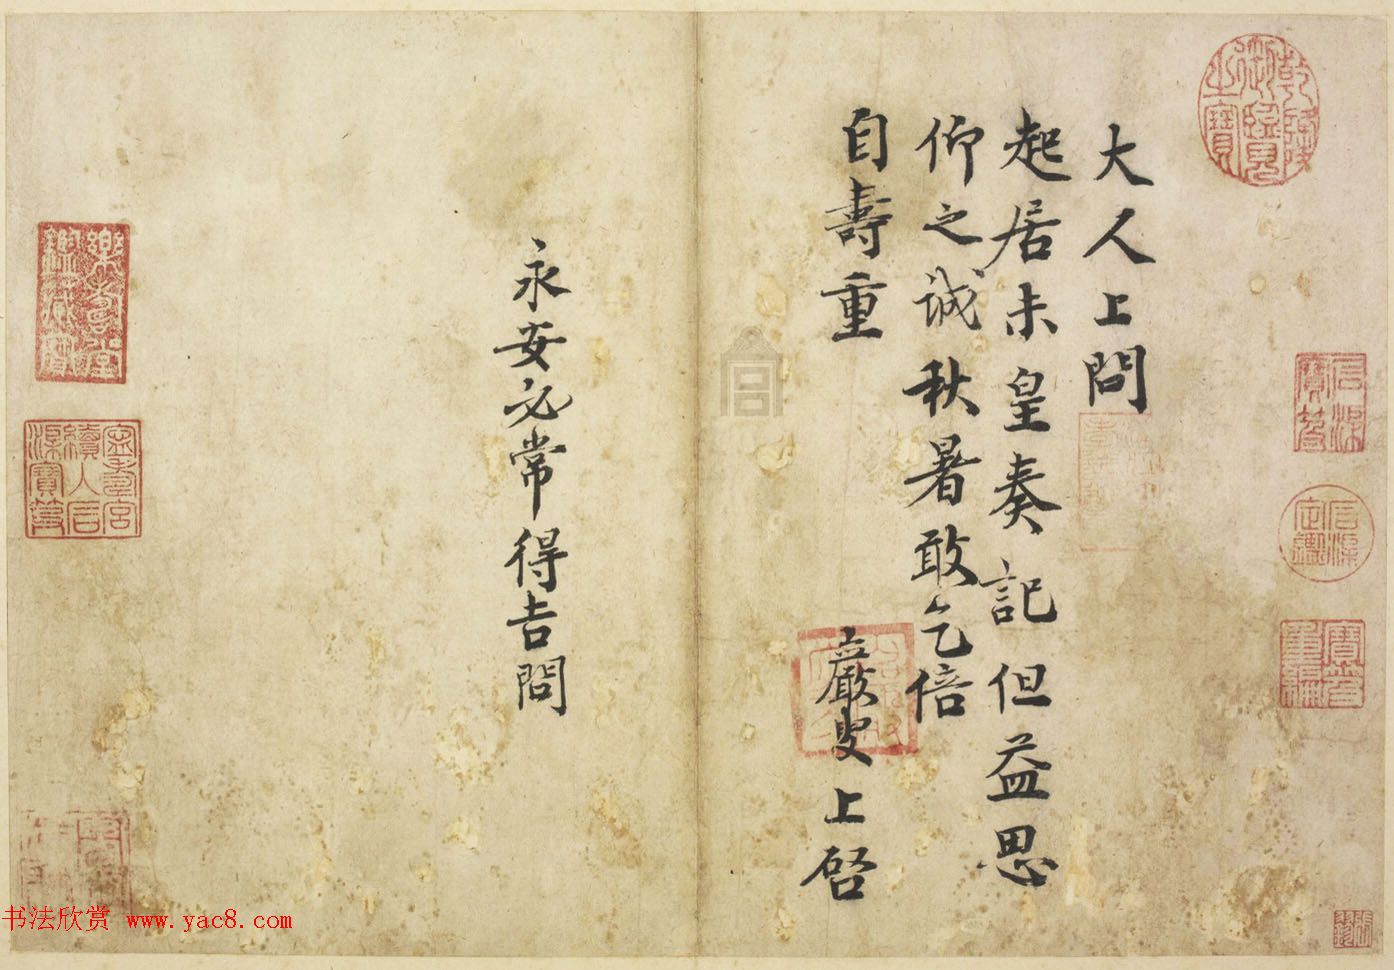 大人上問
起居未皇奏記但益思
仰之誠秋暑敢乞倍
自壽重
巖叟上啓
永安必常得吉問
乾隆御覽之寶
石渠寶笈
石渠定鑑
寶笈重編
樂壽堂鑑藏寶
寧壽宮續入石渠寶笈
书法欣赏 www.yac8.com